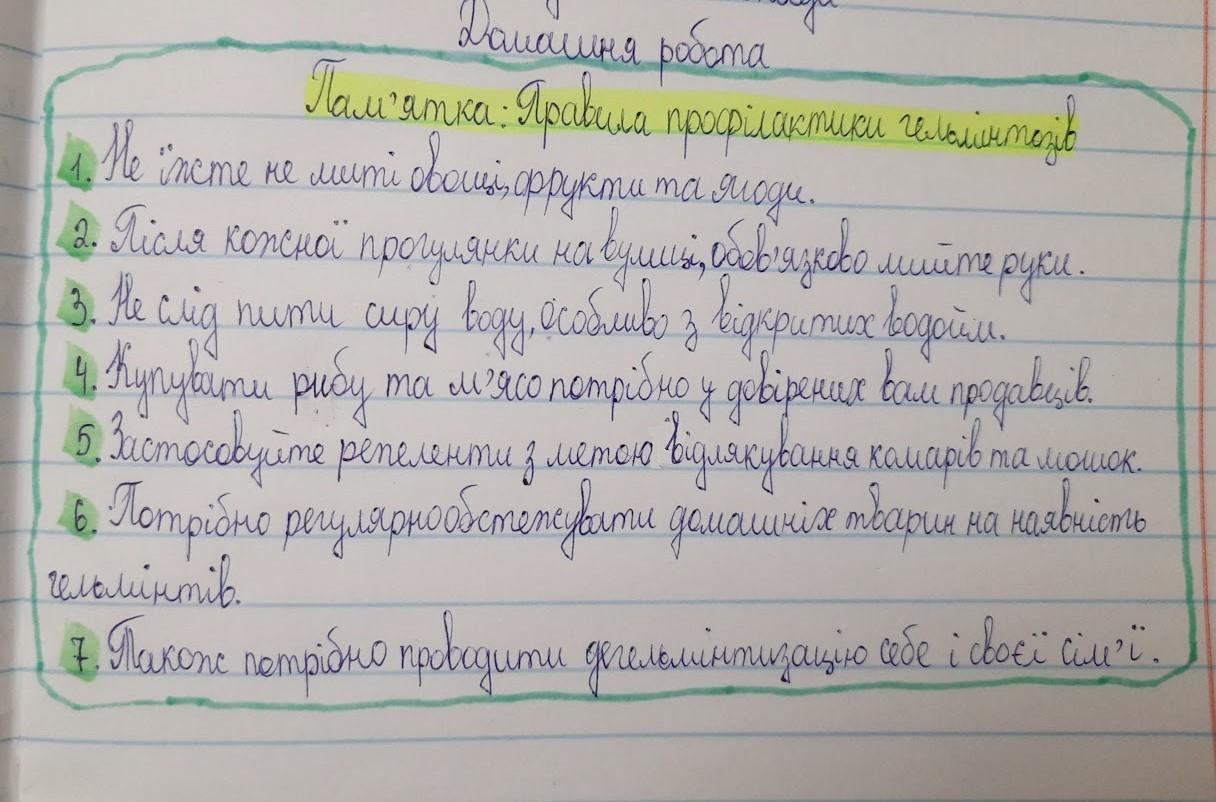 Домашня робота
Пам'ятка: Правила профілактики гельмінтозів
1. Не їжте не миті овощі, фрукти та ягоди.
2. Після кожної прогулянки на вулиці, обов'язково мийте руки.
3. Не слід пити сиру воду, особливо з відкритих водойм.
4. Купувати рибу та м'ясо потрібно у довірених вам продавців.
5. Застосовуйте репеленти з метою відлякування комарів та мошок.
6. Потрібно регулярно обстежувати домашніх тварин на наявність
гельмінтів.
7. Також потрібно проводити дегельмінтизацію себе і своєї сім'ї.